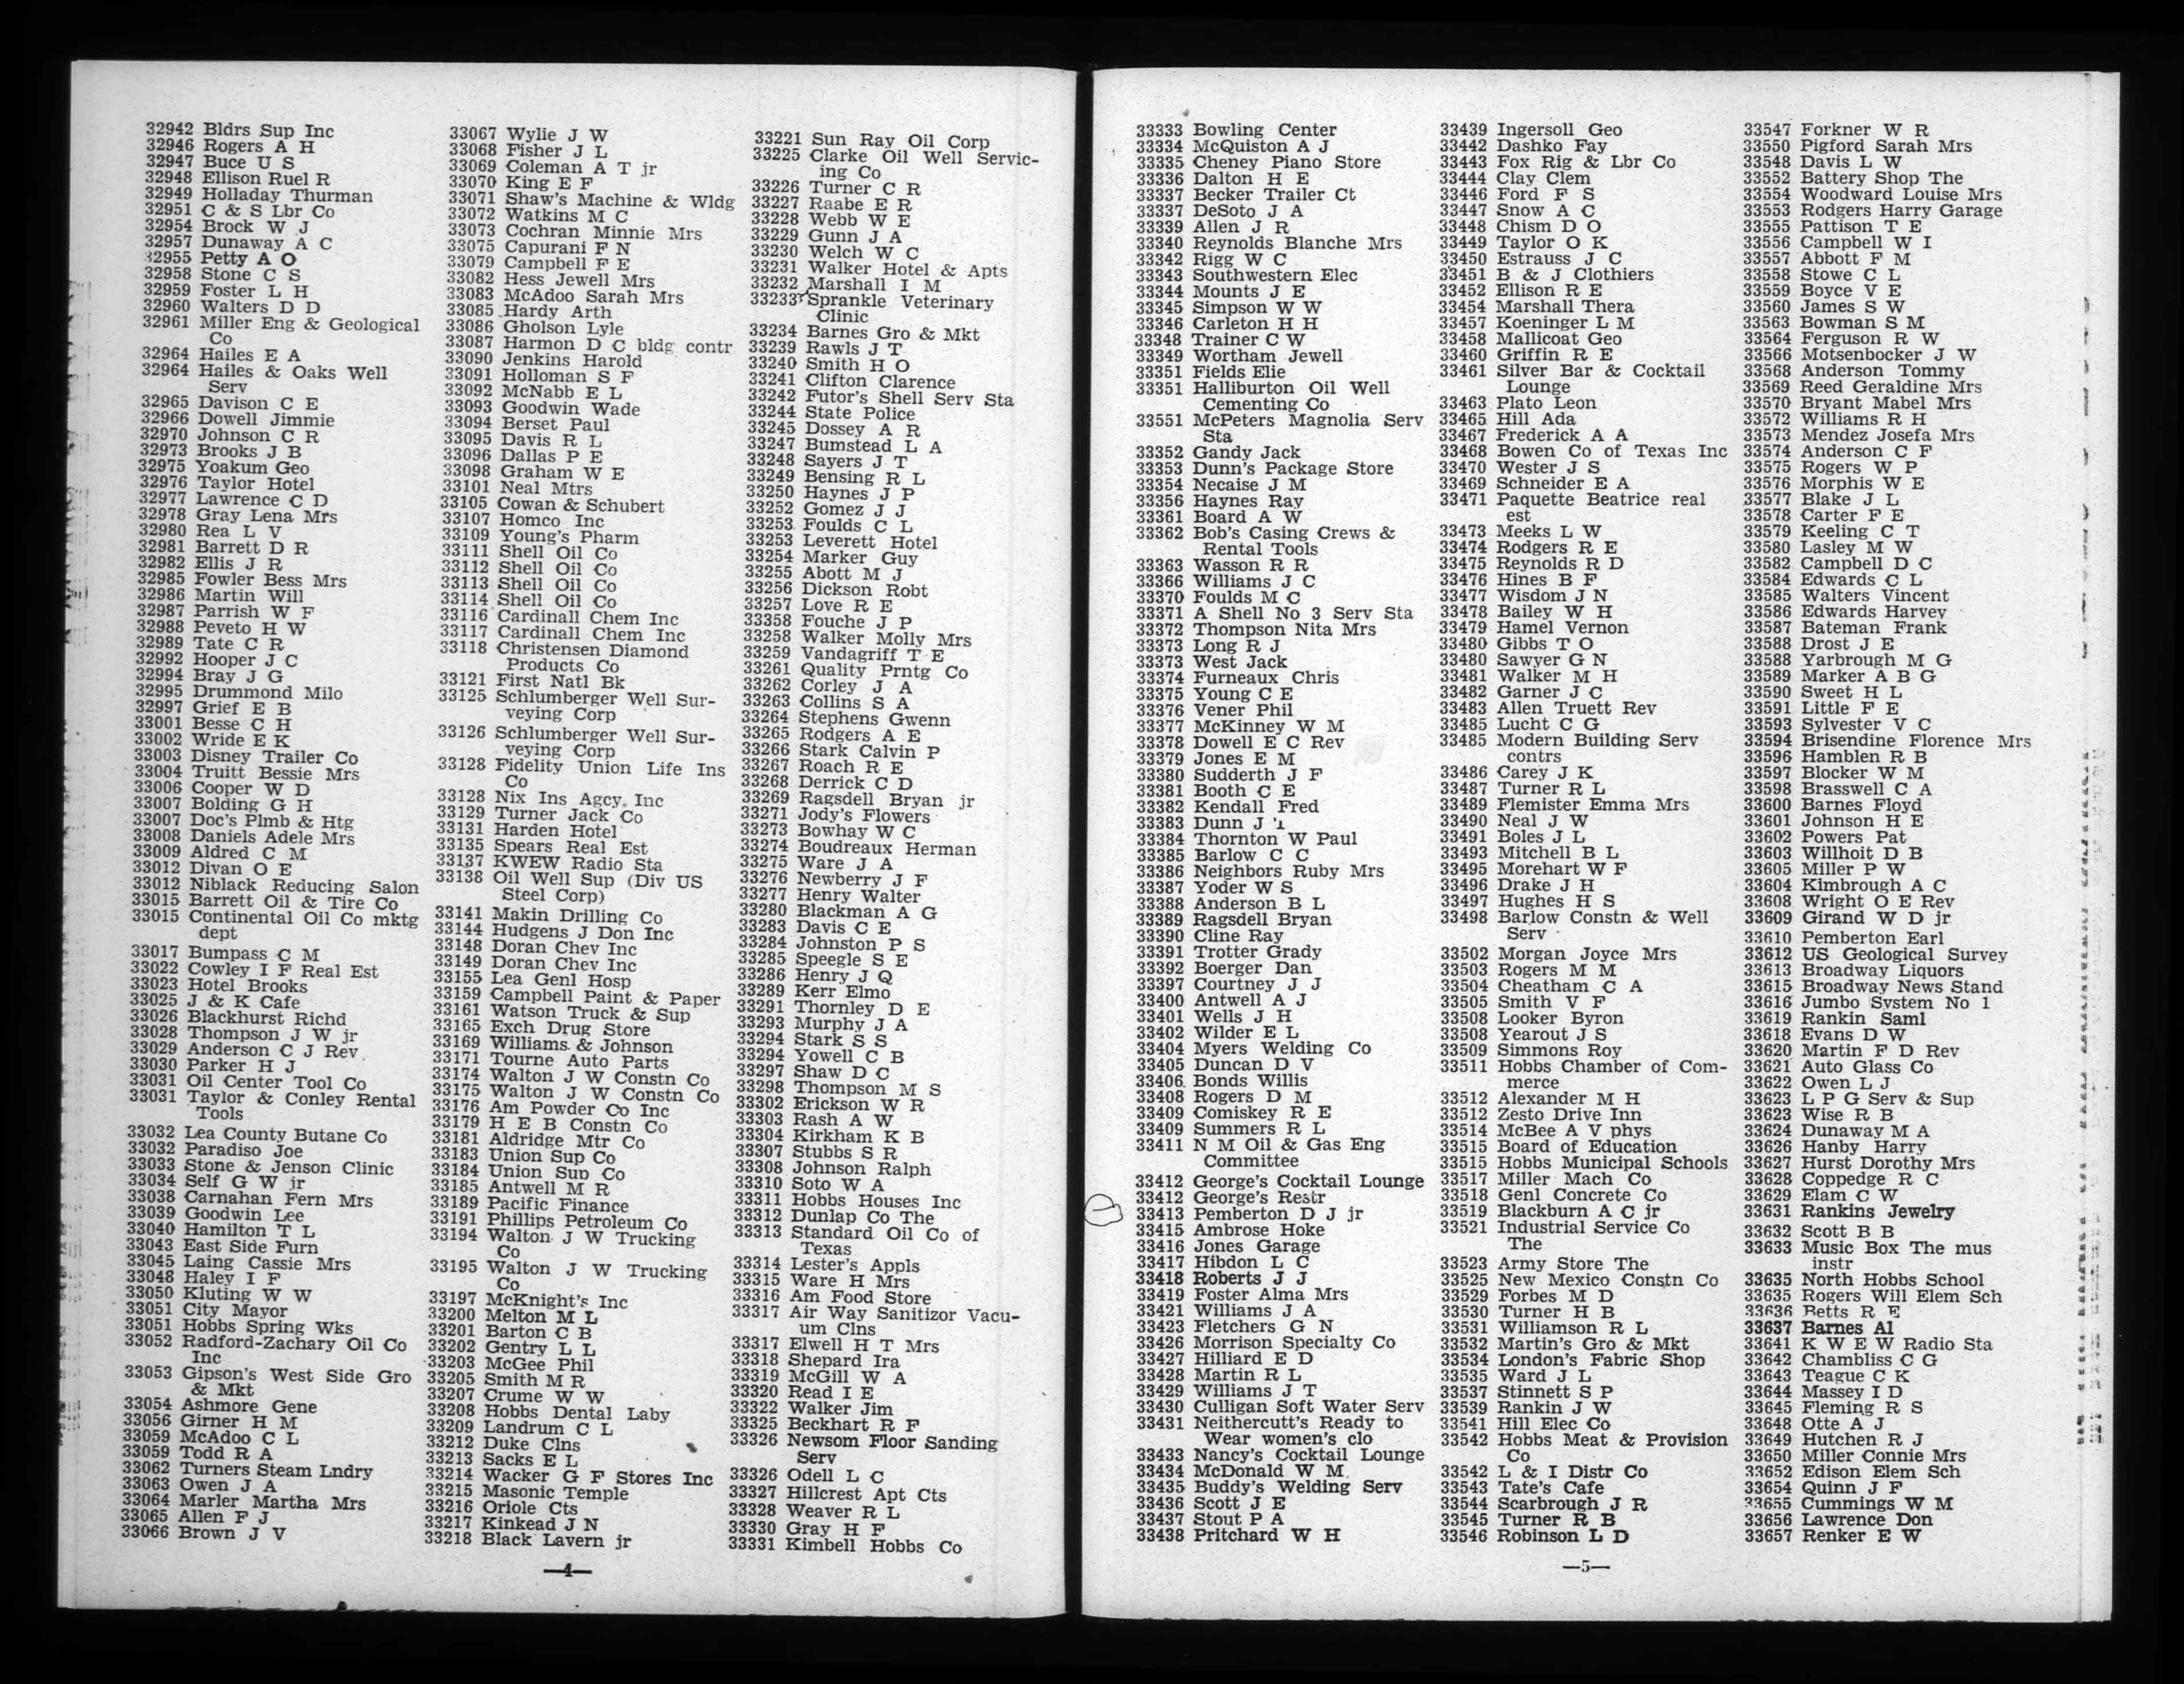 32942 Bldrs Sup Inc
32946 Rogers A H
32947 Buce U S
32948 Ellison Ruel R
32949 Holladay Thurman
32951 C & S Lbr Co
32954 Brock W J
32957 Dunaway A C
32955 Petty A O
32958 Stone C S
32959 Foster L H
32960 Walters D D
32961 Miller Eng & Geological
Co
32964 Hailes E A
32964 Hailes & Oaks Well
Serv
32965 Davison C E
32966 Dowell Jimmie
32970 Johnson C R
32973 Brooks J B
32975 Yoakum Geo
32976 Taylor Hotel
32977 Lawrence C D
32978 Gray Lena Mrs
32980 Rea L V
32981 Barrett D R
32982 Ellis J R
32985 Fowler Bess Mrs
32986 Martin Will
32987 Parrish W F
32988 Peveto H W
32989 Tate C R
32992 Hooper J C
32994 Bray J G
32995 Drummond Milo
32997 Grief E B
33001 Besse C H
33002 Wride E K
33003 Disney Trailer Co
33004 Truitt Bessie Mrs
33006 Cooper W D
33007 Bolding G H
33007 Doc's Plmb & Htg
33008 Daniels Adele Mrs
33009 Aldred C M
33012 Divan O E
33012 Niblack Reducing Salon
33015 Barrett Oil & Tire Co
33015 Continental Oil Co mktg
dept
33017 Bumpass C M
33022 Cowley I F Real Est
33023 Hotel Brooks
33025 J & K Cafe
33026 Blackhurst Richd
33028 Thompson J W jr
33029 Anderson C J Rev
33030 Parker H J
33031 Oil Center Tool Co
33031 Taylor & Conley Rental
Tools
33032 Lea County Butane Co
33032 Paradiso Joe
33033 Stone & Jenson Clinic
33034 Self G W jr
33038 Carnahan Fern Mrs
33039 Goodwin Lee
33040 Hamilton T L
33043 East Side Furn
33045 Laing Cassie Mrs
33048 Haley I F
33050 Kluting W W
33051 City Mayor
33051 Hobbs Spring Wks
33052 Radford-Zachary Oil Co
Inc
33053 Gipson's West Side Gro
& Mkt
33054 Ashmore Gene
33056 Girner H M
33059 McAdoo C L
33059 Todd R A
33062 Turners Steam Lndry
33063 Owen J A
33064 Marler Martha Mrs
33065 Allen F J
33066 Brown J V
33067 Wylie J W
33068 Fisher J L
33069 Coleman A T jr
33070 King E F
33071 Shaw's Machine & Wldg
33072 Watkins M C
33073 Cochran Minnie Mrs
33075 Capurani F N
33079 Campbell F E
33082 Hess Jewell Mrs
33083 McAdoo Sarah Mrs
33085 Hardy Arth
33086 Gholson Lyle
33087 Harmon D C bldg contr
33090 Jenkins Harold
33091 Holloman S F
33092 McNabb E L
33093 Goodwin Wade
33094 Berset Paul
33095 Davis R L
33096 Dallas P E
33098 Graham W E
33101 Neal Mtrs
33105 Cowan & Schubert
33107 Homco Inc
33109 Young's Pharm
33111 Shell Oil Co
33112 Shell Oil Co
33113 Shell Oil Co
33114 Shell Oil Co
33116 Cardinall Chem Inc
33117 Cardinall Chem Inc
33118 Christensen Diamond
Products Co
33121 First Natl Bk
33125 Schlumberger Well Sur-
veying Corp
33126 Schlumberger Well Sur-
veying Corp
33128 Fidelity Union Life Ins
Co
33128 Nix Ins Agcy, Inc
33129 Turner Jack Co
33131 Harden Hotel
33135 Spears Real Est
33137 KWEW Radio Sta
33138 Oil Well Sup (Div US
Steel Corp)
33141 Makin Drilling Co
33144 Hudgens J Don Inc
33148 Doran Chev Inc
33149 Doran Chev Inc
33155 Lea Genl Hosp
33159 Campbell Paint & Paper
33161 Watson Truck & Sup
33165 Exch Drug Store
33169 Williams & Johnson
33171 Tourne Auto Parts
33174 Walton J W Constn Co
33175 Walton J W Constn Co
33176 Am Powder Co Inc
33179 H E B Constn Co
33181 Aldridge Mtr Co
33183 Union Sup Co
33184 Union Sup Co
33185 Antwell M R
33189 Pacific Finance
33191 Phillips Petroleum Co
33194 Walton J W Trucking
Co
33195 Walton J W Trucking
Co
33197 McKnight's Inc
33200 Melton M L
33201 Barton C B
33202 Gentry L L
33203 McGee Phil
33205 Smith M R
33207 Crume W W
33208 Hobbs Dental Laby
33209 Landrum C L
33212 Duke Clns
33213 Sacks E L
33214 Wacker G F Stores Inc
33215 Masonic Temple
33216 Oriole Cts
33217 Kinkead J N
33218 Black Lavern jr
33221 Sun Ray Oil Corp
33225 Clarke Oil Well Servic-
ing Co
33226 Turner C R
33227 Raabe E R
33228 Webb W E
33229 Gunn J A
33230 Welch W C
33231 Walker Hotel & Apts
33232 Marshall I M
33233 Sprankle Veterinary
Clinic
33234 Barnes Gro & Mkt
33239 Rawls J T
33240 Smith H O
33241 Clifton Clarence
33242 Futor's Shell Serv Sta
33244 State Police
33245 Dossey A R
33247 Bumstead L A
33248 Sayers J T
33249 Bensing R L
33250 Haynes J P
33252 Gomez J J
33253 Foulds C L
33253 Leverett Hotel
33254 Marker Guy
33255 Abott M J
33256 Dickson Robt
33257 Love R E
33358 Fouche J P
33258 Walker Molly Mrs
33259 Vandagriff T E
33261 Quality Prntg Co
33262 Corley J A
33263 Collins S A
33264 Stephens Gwenn
33265 Rodgers A E
33266 Stark Calvin P
33267 Roach R E
33268 Derrick C D
33269 Ragsdell Bryan jr
33271 Jody's Flowers
33273 Bowhay W C
33274 Boudreaux Herman
33275 Ware J A
33276 Newberry J F
33277 Henry Walter
33280 Blackman A G
33283 Davis C E
33284 Johnston P S
33285 Speegle S E
33286 Henry J Q
33289 Kerr Elmo
33291 Thornley D E
33293 Murphy J A
33294 Stark S S
33294 Yowell C B
33297 Shaw D C
33298 Thompson M S
33302 Erickson W R
33303 Rash A W
33304 Kirkham K B
33307 Stubbs S R
33308 Johnson Ralph
33310 Soto W A
33311 Hobbs Houses Inc
33312 Dunlap Co The
33313 Standard Oil Co of
Texas
33314 Lester's Appls
33315 Ware H Mrs
33316 Am Food Store
33317 Air Way Sanitizor Vacu-
um Clns
33317 Elwell H T Mrs
33318 Shepard Ira
33319 McGill W A
33320 Read I E
33322 Walker Jim
33325 Beckhart R F
33326 Newsom Floor Sanding
Serv
33326 Odell L C
33327 Hillcrest Apt Cts
33328 Weaver R L
33330 Gray H F
33331 Kimbell Hobbs Co
—4—
33333 Bowling Center
33334 McQuiston A J
33335 Cheney Piano Store
33336 Dalton H E
33337 Becker Trailer Ct
33337 DeSoto J A
33339 Allen J R
33340 Reynolds Blanche Mrs
33342 Rigg W C
33343 Southwestern Elec
33344 Mounts J E
33345 Simpson W W
33346 Carleton H H
33348 Trainer C W
33349 Wortham Jewell
33351 Fields Elie
33351 Halliburton Oil Well
Cementing Co
33551 McPeters Magnolia Serv
Sta
33352 Gandy Jack
33353 Dunn's Package Store
33354 Necaise J M
33356 Haynes Ray
33361 Board A W
33362 Bob's Casing Crews &
Rental Tools
33363 Wasson R R
33366 Williams J C
33370 Foulds M C
33371 A Shell No 3 Serv Sta
33372 Thompson Nita Mrs
33373 Long R J
33373 West Jack
33374 Furneaux Chris
33375 Young C E
33376 Vener Phil
33377 McKinney W M
33378 Dowell E C Rev
33379 Jones E M
33380 Sudderth J F
33381 Booth C E
33382 Kendall Fred
33383 Dunn J
33384 Thornton W Paul
33385 Barlow C C
33386 Neighbors Ruby Mrs
33387 Yoder W S
33388 Anderson B L
33389 Ragsdell Bryan
33390 Cline Ray
33391 Trotter Grady
33392 Boerger Dan
33397 Courtney J J
33400 Antwell A J
33401 Wells J H
33402 Wilder E L
33404 Myers Welding Co
33405 Duncan D V
33406 Bonds Willis
33408 Rogers D M
33409 Comiskey R E
33409 Summers R L
33411 N M Oil & Gas Eng
Committee
33412 George's Cocktail Lounge
33412 George's Restr
33413 Pemberton D J jr
33415 Ambrose Hoke
33416 Jones Garage
33417 Hibdon L C
33418 Roberts J J
33419 Foster Alma Mrs
33421 Williams J A
33423 Fletchers G N
33426 Morrison Specialty Co
33427 Hilliard E D
33428 Martin R L
33429 Williams J T
33430 Culligan Soft Water Serv
33431 Neithercutt's Ready to
Wear women's clo
33433 Nancy's Cocktail Lounge
33434 McDonald W M
33435 Buddy's Welding Serv
33436 Scott J E
33437 Stout P A
33438 Pritchard W H
33439 Ingersoll Geo
33442 Dashko Fay
33443 Fox Rig & Lbr Co
33444 Clay Clem
33446 Ford F S
33447 Snow A C
33448 Chism D O
33449 Taylor O K
33450 Estrauss J C
33451 B & J Clothiers
33452 Ellison R E
33454 Marshall Thera
33457 Koeninger L M
33458 Mallicoat Geo
33460 Griffin R E
33461 Silver Bar & Cocktail
Lounge
33463 Plato Leon
33465 Hill Ada
33467 Frederick A A
33468 Bowen Co of Texas Inc
33470 Wester J S
33469 Schneider E A
33471 Paquette Beatrice real
est
33473 Meeks L W
33474 Rodgers R E
33475 Reynolds R D
33476 Hines B F
33477 Wisdom J N
33478 Bailey W H
33479 Hamel Vernon
33480 Gibbs T O
33480 Sawyer G N
33481 Walker M H
33482 Garner J C
33483 Allen Truett Rev
33485 Lucht C G
33485 Modern Building Serv
contrs
33486 Carey J K
33487 Turner R L
33489 Flemister Emma Mrs
33490 Neal J W
33491 Boles J L
33493 Mitchell B L
33495 Morehart W F
33496 Drake J H
33497 Hughes H S
33498 Barlow Constn & Well
Serv
33502 Morgan Joyce Mrs
33503 Rogers M M
33504 Cheatham C A
33505 Smith V F
33508 Looker Byron
33508 Yearout J S
33509 Simmons Roy
33511 Hobbs Chamber of Com-
merce
33512 Alexander M H
33512 Zesto Drive Inn
33514 McBee A V phys
33515 Board of Education
33515 Hobbs Municipal Schools
33517 Miller Mach Co
33518 Genl Concrete Co
33519 Blackburn A C jr
33521 Industrial Service Co
The
33523 Army Store The
33525 New Mexico Constn Co
33529 Forbes M D
33530 Turner H B
33531 Williamson R L
33532 Martin's Gro & Mkt
33534 London's Fabric Shop
33535 Ward J L
33537 Stinnett S P
33539 Rankin J W
33541 Hill Elec Co
33542 Hobbs Meat & Provision
Co
33542 L & I Distr Co
33543 Tate's Cafe
33544 Scarbrough J R
33545 Turner R B
33546 Robinson L D
33547 Forkner W R
33550 Pigford Sarah Mrs
33548 Davis L W
33552 Battery Shop The
33554 Woodward Louise Mrs
33553 Rodgers Harry Garage
33555 Pattison T E
33556 Campbell W I
33557 Abbott F M
33558 Stowe C L
33559 Boyce V E
33560 James S W
33563 Bowman S M
33564 Ferguson R W
33566 Motsenbocker J W
33568 Anderson Tommy
33569 Reed Geraldine Mrs
33570 Bryant Mabel Mrs
33572 Williams R H
33573 Mendez Josefa Mrs
33574 Anderson C F
33575 Rogers W P
33576 Morphis W E
33577 Blake J L
33578 Carter F E
33579 Keeling C T
33580 Lasley M W
33582 Campbell D C
33584 Edwards C L
33585 Walters Vincent
33586 Edwards Harvey
33587 Bateman Frank
33588 Drost J E
33588 Yarbrough M G
33589 Marker A B G
33590 Sweet H L
33591 Little F E
33593 Sylvester V C
33594 Brisendine Florence Mrs
33596 Hamblen R B
33597 Blocker W M
33598 Brasswell C A
33600 Barnes Floyd
33601 Johnson H E
33602 Powers Pat
33603 Willhoit D B
33605 Miller P W
33604 Kimbrough A C
33608 Wright O E Rev
33609 Girand W D jr
33610 Pemberton Earl
33612 US Geological Survey
33613 Broadway Liquors
33615 Broadway News Stand
33616 Jumbo System No 1
33619 Rankin Saml
33618 Evans D W
33620 Martin F D Rev
33621 Auto Glass Co
33622 Owen L J
33623 L P G Serv & Sup
33623 Wise R B
33624 Dunaway M A
33626 Hanby Harry
33627 Hurst Dorothy Mrs
33628 Coppedge R C
33629 Elam C W
33631 Rankins Jewelry
33632 Scott B B
33633 Music Box The mus
instr
33635 North Hobbs School
33635 Rogers Will Elem Sch
33636 Betts R E
33637 Barnes Al
33641 K W E W Radio Sta
33642 Chambliss C G
33643 Teague C K
33644 Massey I D
33645 Fleming R S
33648 Otte A J
33649 Hutchen R J
33650 Miller Connie Mrs
33652 Edison Elem Sch
33654 Quinn J F
33655 Cummings W M
33656 Lawrence Don
33657 Renker E W
—5—